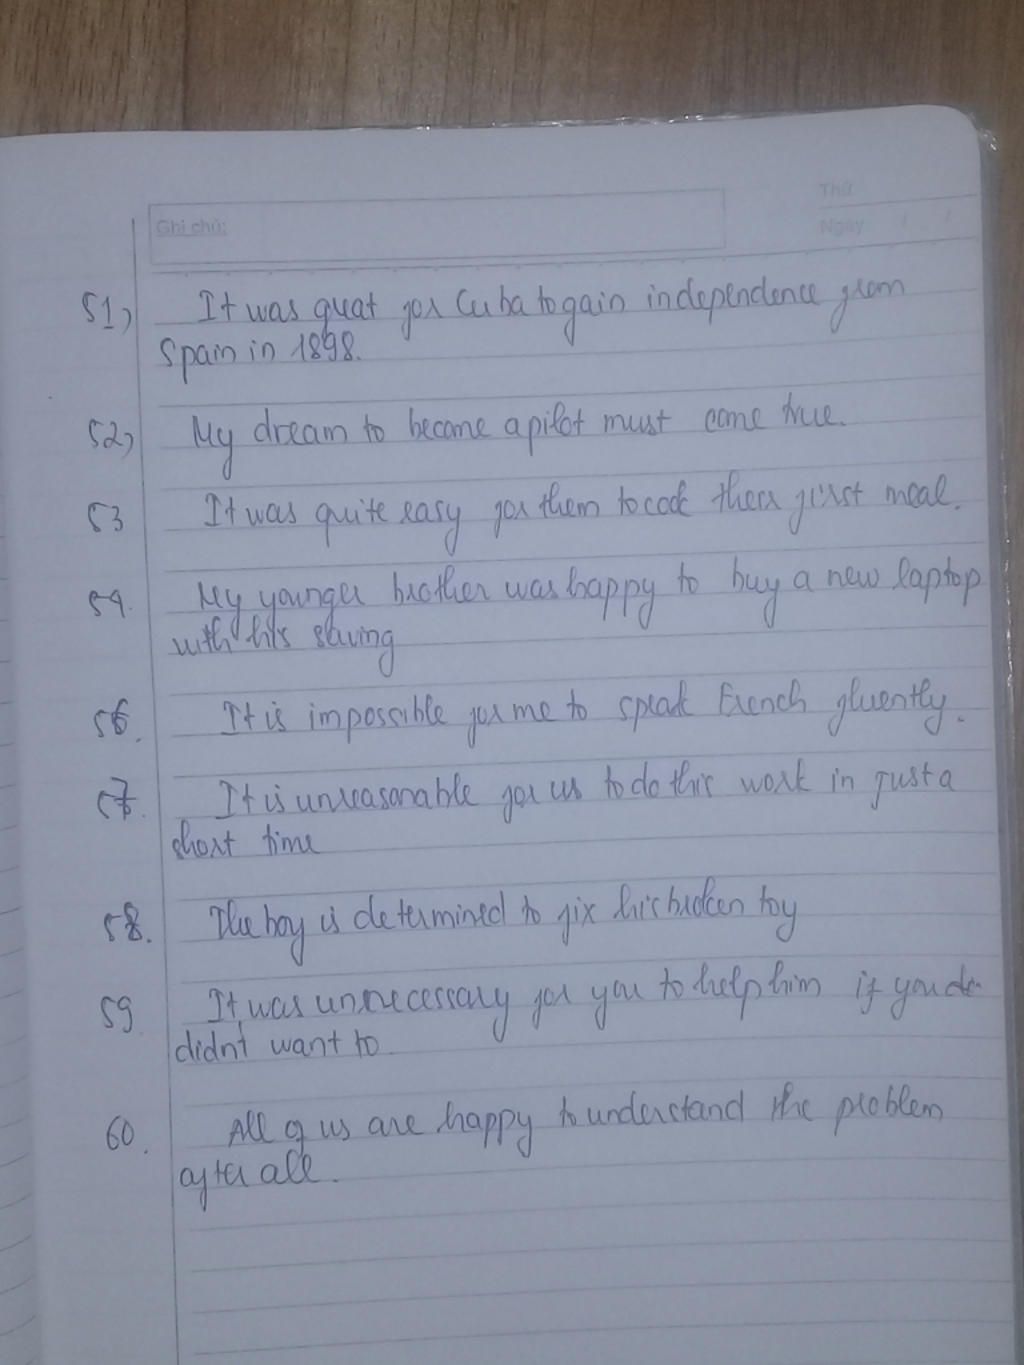 Ghi chú:
Thứ
Ngày / /
51) It was great for Cuba to gain independence from
Spain in 1898.
52) My dream to become a pilot must come true.
53 It was quite easy for them to cook their first meal.
54. My younger brother was happy to buy a new laptop
with his saving
56. It is impossible for me to speak French fluently.
57. It is unreasonable for us to do this work in just a
short time
58. The boy is determined to fix his broken toy
59 It was unnecessary for you to help him if you
didn't want to.
60. All of us are happy to understand the problem
after all.